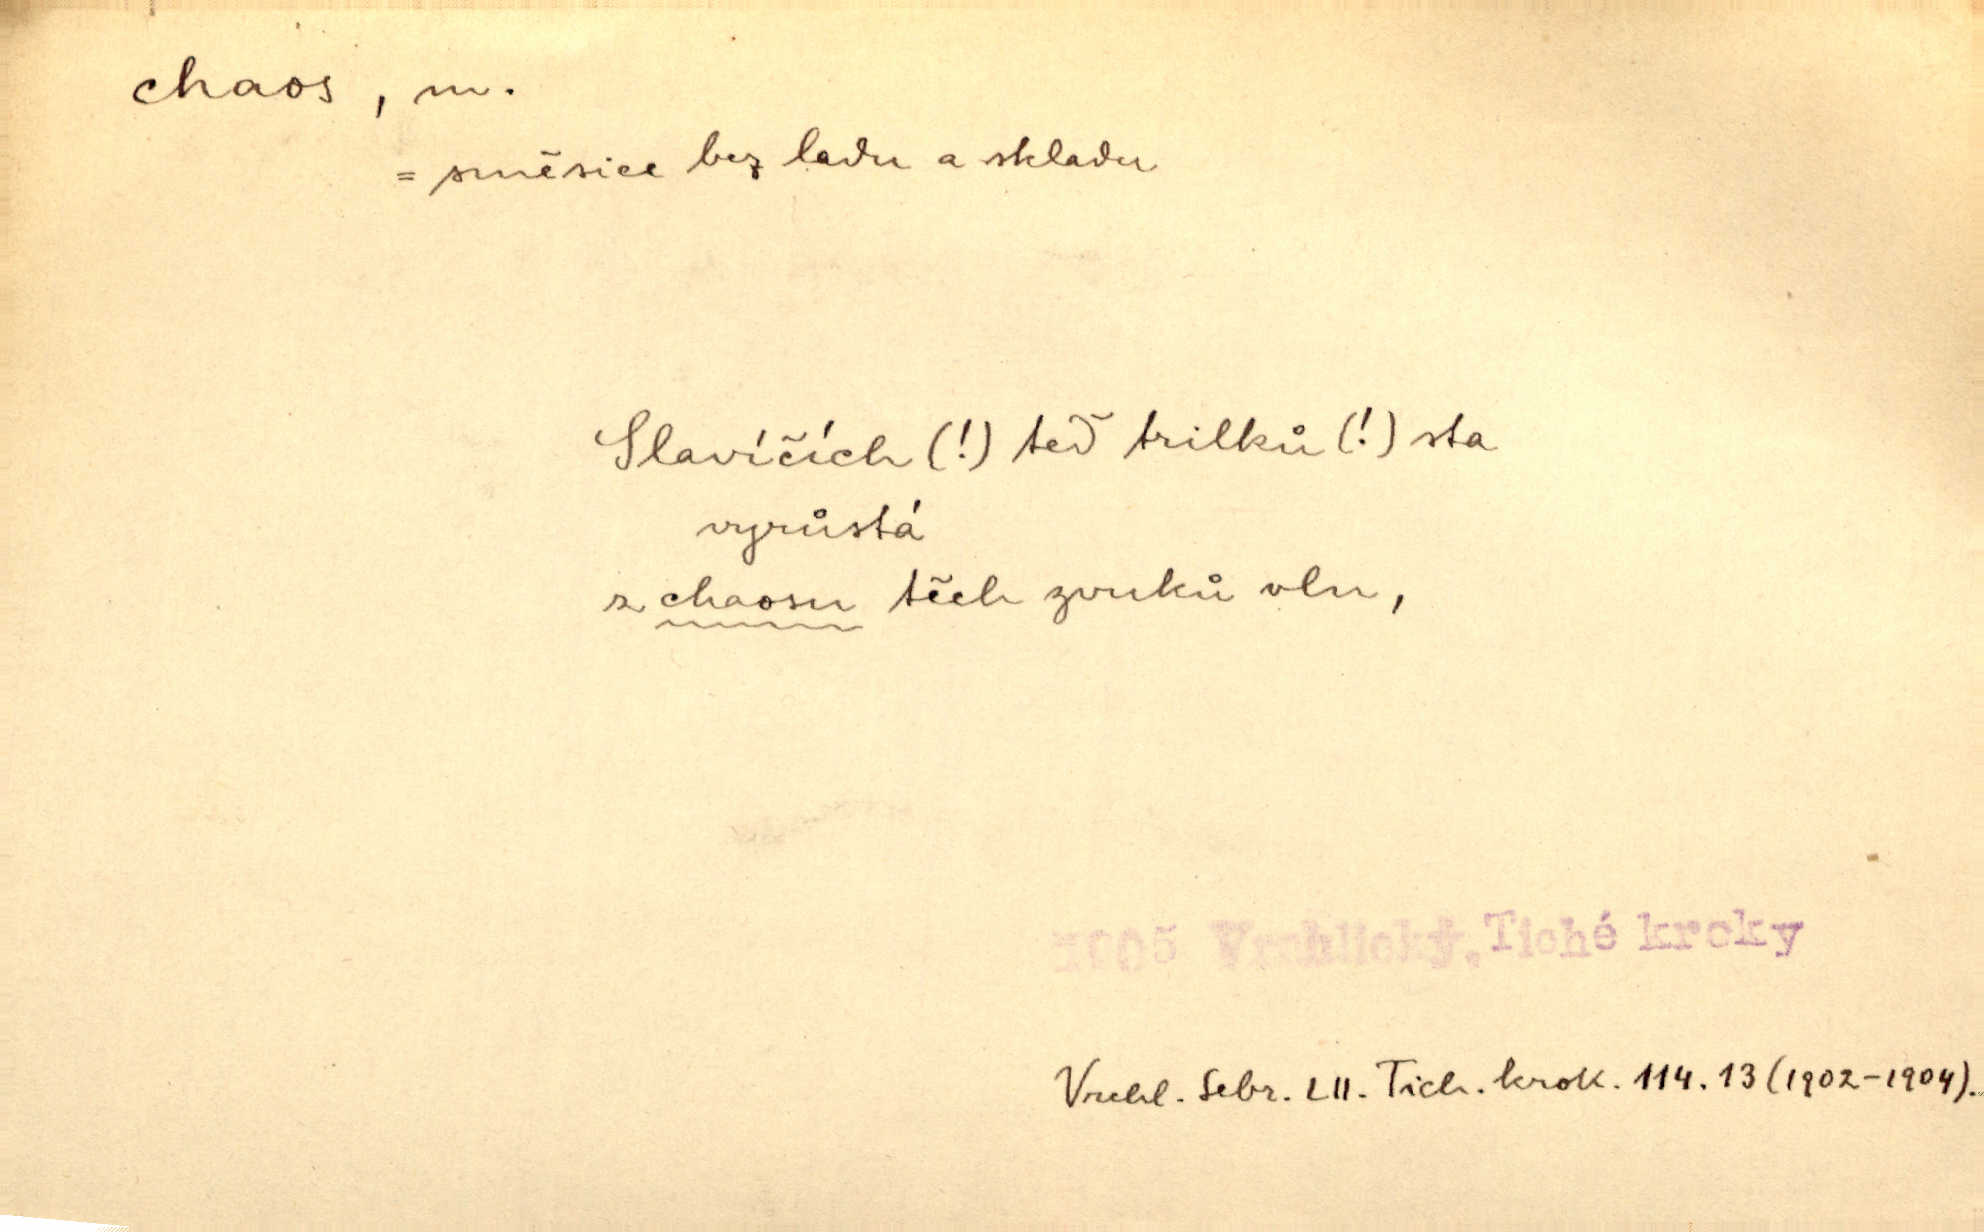 chaos, m.
= směsice bez ladu a skladu
Slavíčích (!) teď trilků (!) sta
vyrůstá
z chaosu těch zvuků vln,
1905 Vrchlický, Tiché kroky
Vrchl. Sebr. LII. Tich. krok. 114. 13 (1902-1904).